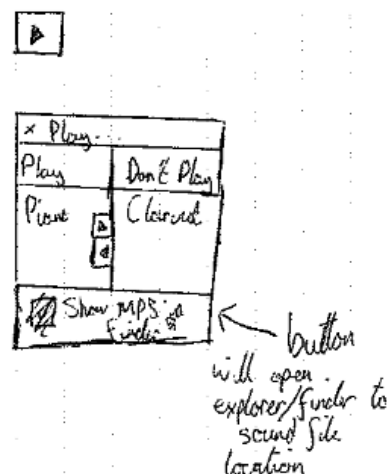 × Play...
Play
Don't Play
Piano
Clarinet
Show MP3 in
Finder
button
will open
explorer/finder to
sound file
location